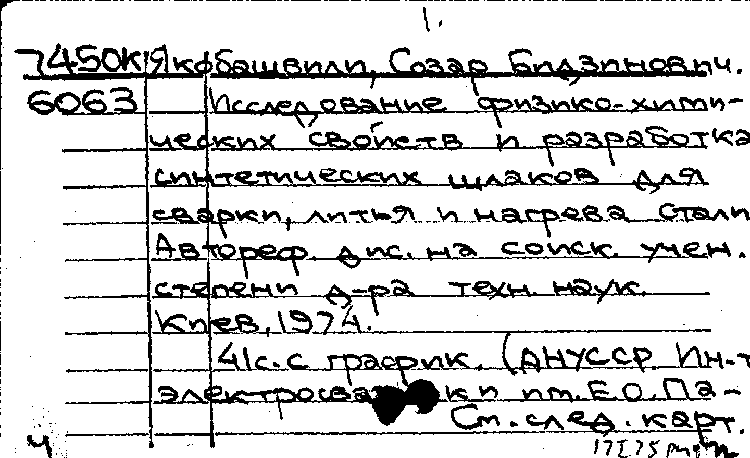 1.
7450К Якобашвили, Созар Бидзинович.
6063 Исследование физико-хими-
ческих свойств и разработка
синтетических шлаков для
сварки, литья и нагрева стали
Автореф. дис. на соиск. учен.
степени д-ра техн. наук.
Киев, 1974.
41с. с график. (АН УССР. Ин-т
электросварки им. Е.О. Па-
См. след. карт.
ч